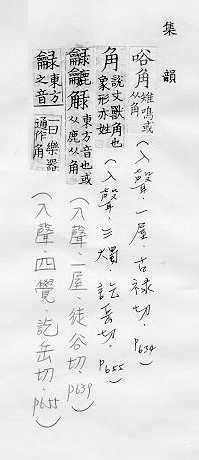 集韻
𧮰角雉鳴或从角(入聲.一屋.古祿切.P634)
角說文獸角也象形亦姓(入聲.三燭.訖岳切.P655)
龣觮東方音也或从鹿从角(入聲.一屋.徒谷切.P639)
龣東方之音一曰樂器通作角(入聲.四覺.訖岳切.P655)